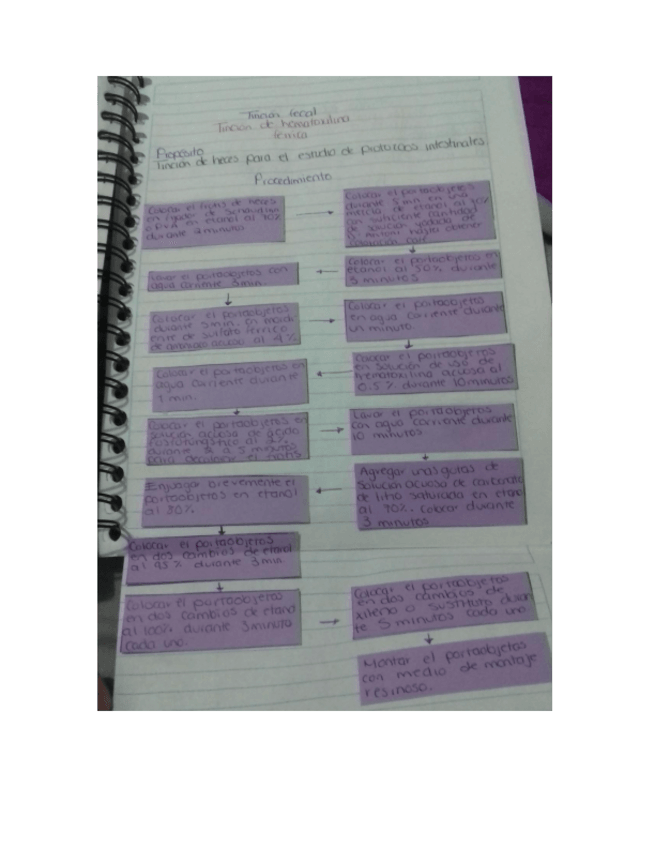 Tinción fecal
Tinción de hematoxilina
férrica
Propósito
Tinción de heces para el estudio de protozoos intestinales
Procedimiento
Colocar el frotis de heces
en
o PVA en etanol al 70%
durante
minutos
Colocar el portaobjetos
durante 5 min en una
mezcla de etanol al 70%
con suficiente cantidad
de solución yodada de
hasta obtener
Colocar el portaobjetos en
etanol al 50% durante
5 minutos
Lavar el portaobjetos con
agua corriente 3 min.
Colocar el portaobjetos
durante 5 min. en mordi
ente de sulfato férrico
de amonio acuoso al 4%
Colocar el portaobjetos
en agua corriente durante
un minuto.
Colocar el portaobjetos
en solución de uso de
hematoxilina acuosa al
0.5% durante 10 minutos
Colocar el portaobjetos en
agua corriente durante
1 min.
Colocar el portaobjetos en
solución acuosa de ácido
fosfotúngstico al 2%
durante
a 5 minutos
para decolorar el frotis
Lavar el portaobjetos
con agua corriente durante
10 minutos.
Agregar unas gotas de
solución acuosa de carbonato
de litio saturada en etanol
al 70%. Colocar durante
3 minutos
Enjuagar brevemente el
portaobjetos en etanol
al 80%.
Colocar el portaobjetos
en dos cambios de etanol
al 95% durante 3 min
Colocar el portaobjetos
en dos cambios de etanol
al 100% durante 3 minuto
cada uno.
Colocar el portaobjetos
en dos cambios de
xileno o sustituto duran
te 5 minutos cada uno.
Montar el portaobjetos
con medio de montaje
resinoso.